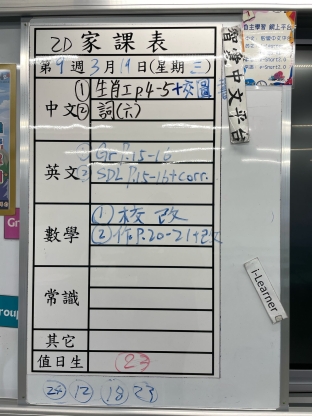 2D 家課表
第9週3月19日(星期三)
中文
① 生肖工p.4-5+交圖書
② 詞(六)
英文
① Gr P.15-16
② SDL P.15-16+corr.
數學
① 校改
② 作P.20-21+改
常識
其它
值日生
23
24 12 18 23
智愛中文平台
自主學習 網上平台
i-Learner